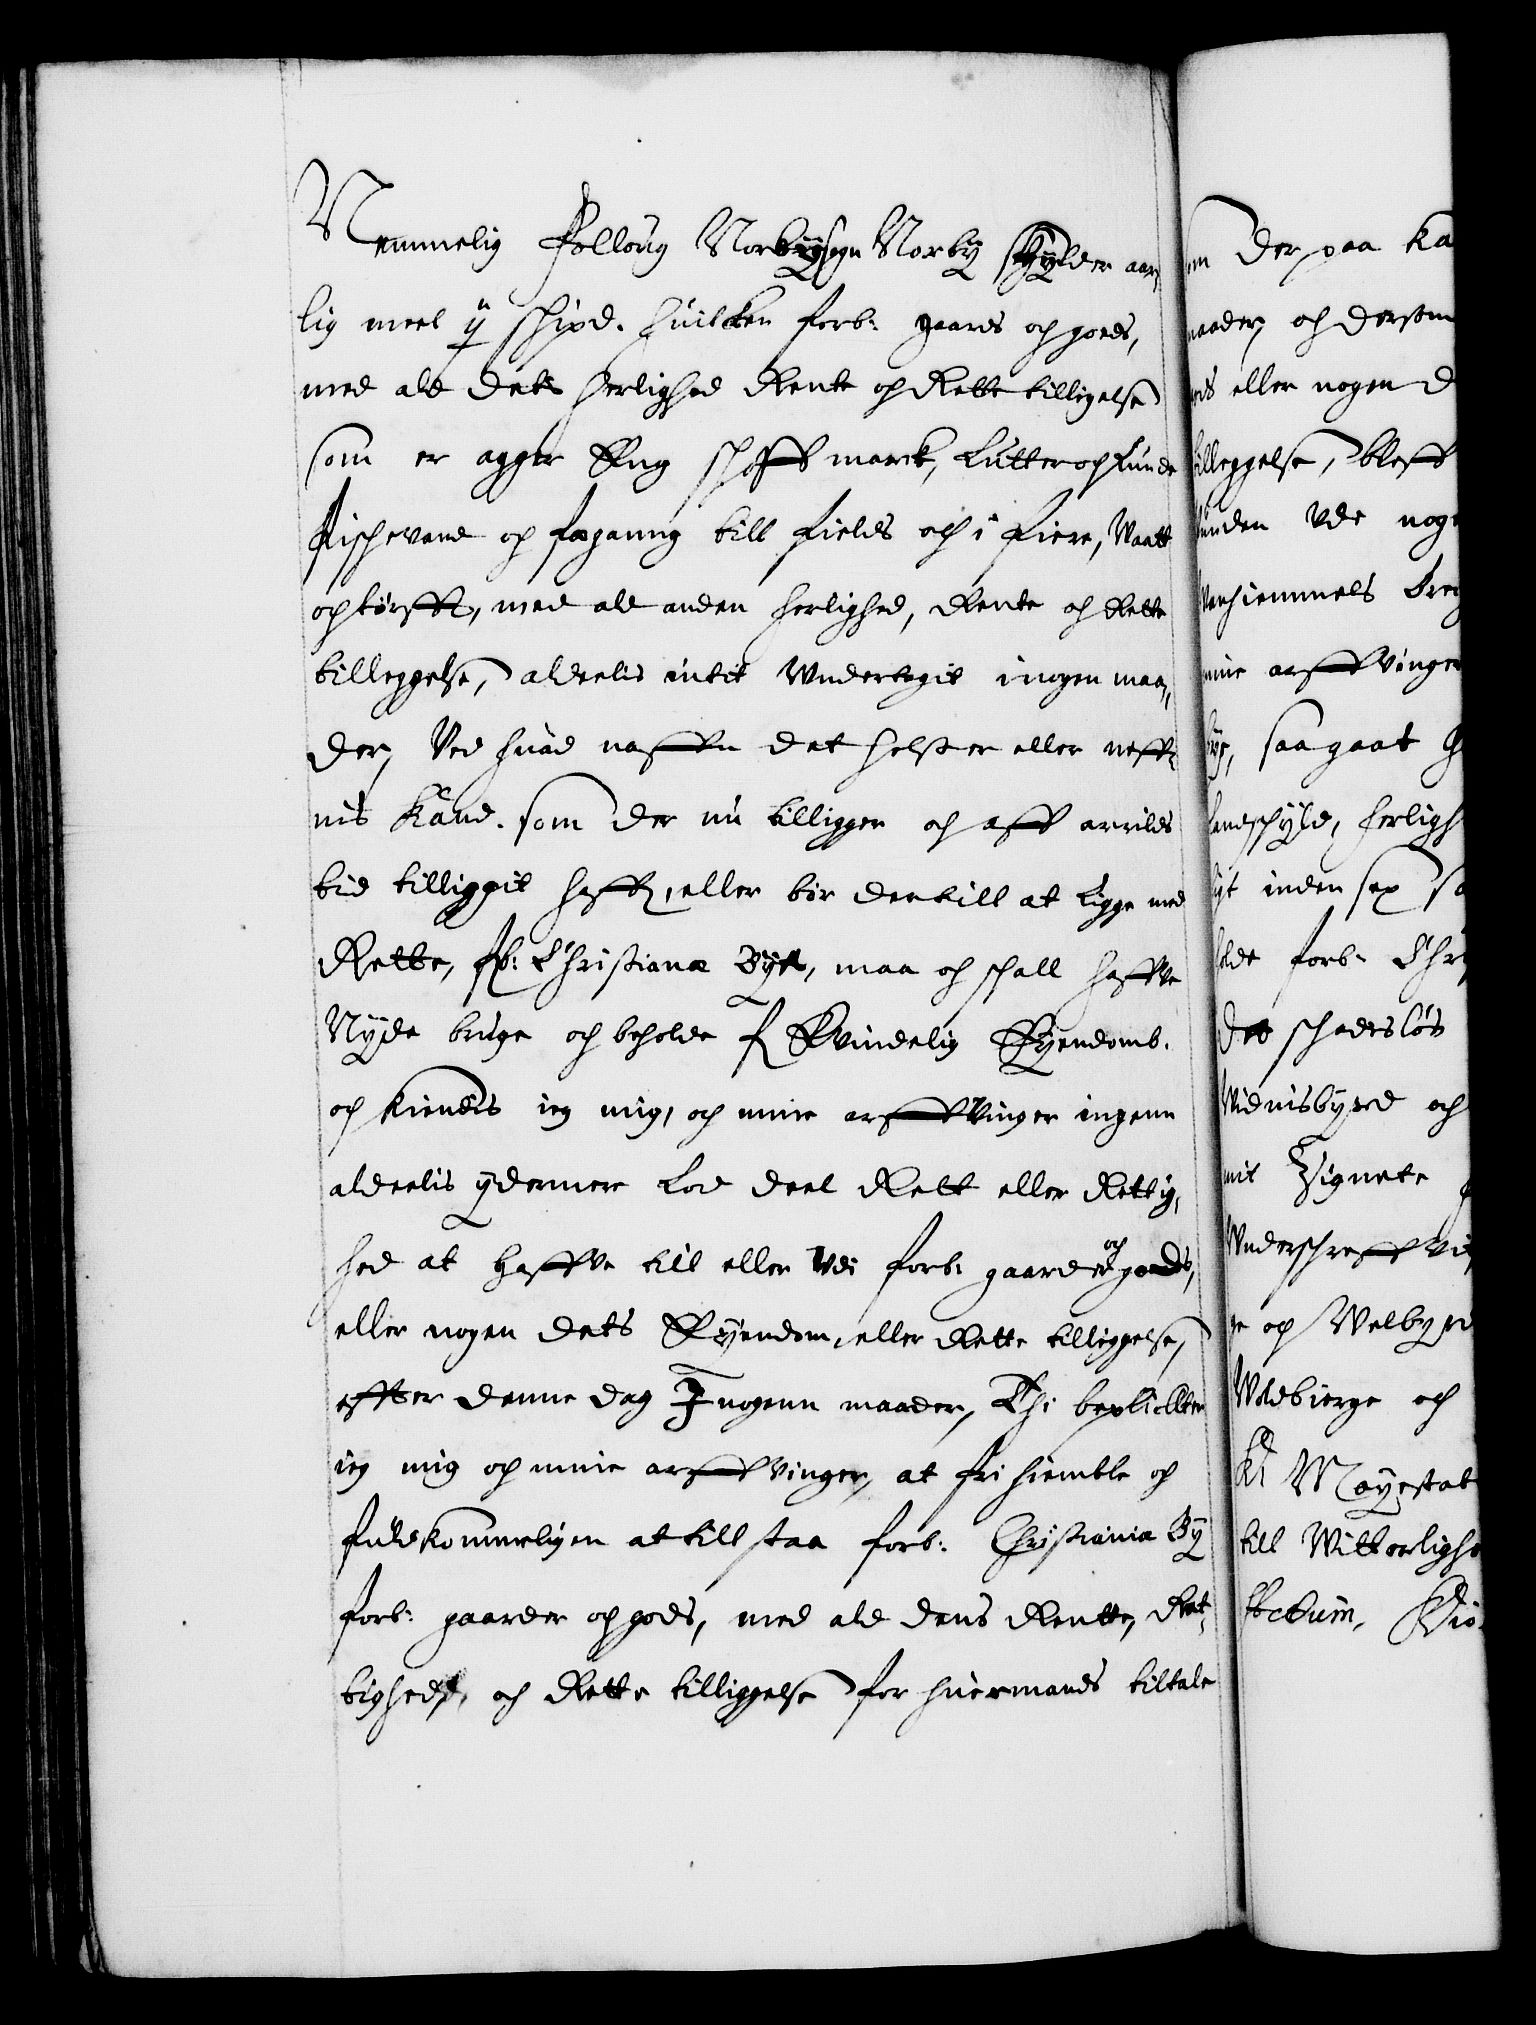 Nemmelig Folloug Norbysogn Norby schylder aar,,
lig meel ij schipd. huilcken forb: gaards och goeds,
med ald dets herlighed Rente och Rette tilligelse
som er agger Eng schoff marck, Lutter och Lunde
fischevand och fægang till fields och i fiere, Waatt
och tørfft, med ald anden herlighed, Rente och Rette
tilleggelse, aldeelis intit Wndertagit i nogen maa,,
der, Ved huad naffn det helst er eller neff,,
nis kand. som der nu tilligger och aff arrilds
tid tilliggit haffr, eller bør der till at Ligge med
Rette, fb: Christianæ Bye, maa och schall haffve
Nyde bruge och beholde f Evindelig Eyendomb.
och kiendis ieg mig, och mine arffvinger ingenn
aldeelis ydermere Lod deel Rett eller Rettig,,
hed at haffve till eller Vdi forb: gaarder och goeds,
eller nogen dets Eyendom, eller Rette tilliggelse,
effter denne dag I nogenn maader, Thi beplichter
ieg mig och mine arffvinger, at fri hiemble och
fuldkommeligen at tillstaa forb: Christiania By
forb: gaarder och gods, med ald dens Rentte, Ret,,
tighed, och Rette tilliggelse for huermands tiltale
en der paa ka
maader, och dersom
eller nogen d
tilleggelse, bleff
Vde nog
Vanhiemmels Bre
mine arffvinge
bye, saa gaat
Landschyld, herligh
inden sex
forb: Chr
det schadesløs
Vidnisbyrd och
mit Zignete
Wnderschreffvi
och Welbyrd
Woldbierge och
Kl Mayestat
till Witterlighe
Actum,